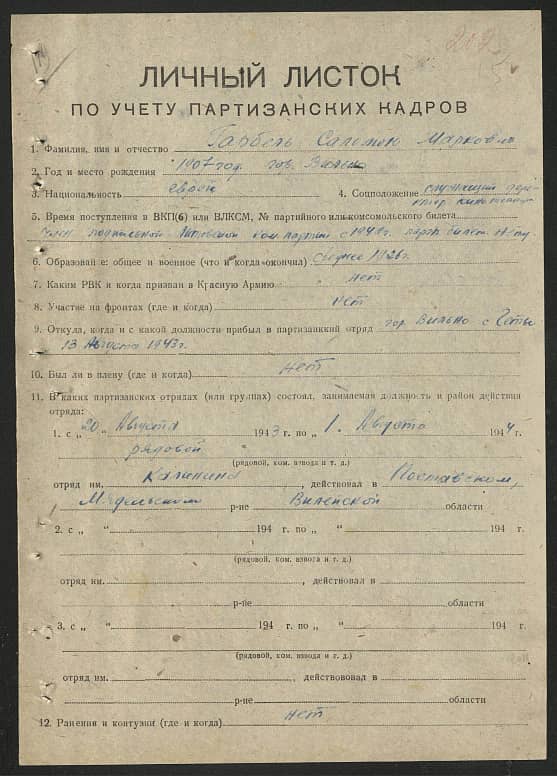 212
ЛИЧНЫЙ ЛИСТОК
ПО УЧЕТУ ПАРТИЗАНСКИХ КАДРОВ
1. Фамилия, имя и отчество Гарбель Саломею Марковна
2. Год и место рождения 1907 год. гор. Вильно
3. Национальность еврей 4. Соцположение служащий
5. Время поступления в ВКП(б) или ВЛКСМ, № партийного или комсомольского билета
член подпольной компартии с 1941 г. парт. билет
6. Образование: общее и военное (что и когда окончил) среднее 1926 г.
7. Каким РВК и когда призван в Красную Армию нет
8. Участие на фронтах (где и когда) нет
9. Откуда, когда и с какой должности прибыл в партизанский отряд гор. Вильно с Гетто
13 Августа 1943 г.
10. Был ли в плену (где и когда) нет
11. В каких партизанских отрядах (или группах) состоял, занимаемая должность и район действия
отряда:
1. с „20" Августа 1943 г. по „1. Августо 1944 г.
рядовой
(рядовой, ком. взвода и т. д.)
отряд им. Калинина, действовал в Поставском,
Мядельском р-не Вилейской области
2. с „ " 194 г. по „ " 194 г.
(рядовой, ком. взвога и т. д.)
отряд им. , действовал в
р-не области
3. с „ " 194 г. по „ " 194 г.
(рядовой, ком. взвода и т. д.)
отряд им. , действовал в
р-не области
12. Ранения и контузии (где и когда) нет